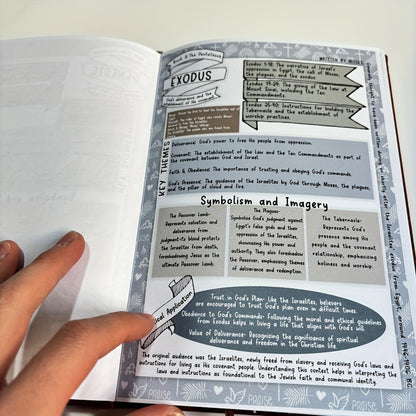 Book 2 The Pentateuch
WRITTEN BY MOSES
EXODUS
God's deliverance and the
establishment of His covenant
Exodus 1-18: The narrative of Israel's
oppression in Egypt, the call of Moses,
the plagues, and the exodus.
Exodus 19-24: The giving of the Law at
Mount Sinai, including the Ten
Commandments.
Exodus 25-40: Instructions for building the
Tabernacle and the establishment of
worship practices.
KEY THEMES
Deliverance: God's power to free His people from oppression.
Covenant: The establishment of the Law and the Ten Commandments as part of
the covenant between God and Israel.
Faith & Obedience: The importance of trusting and obeying God's commands.
God's Presence: The guidance of the Israelites by God through Moses, the plagues,
and the pillar of cloud and fire.
Symbolism and Imagery
The Passover Lamb-
Represents salvation and
deliverance from
judgment-its blood protects
the Israelites from death,
foreshadowing Jesus as the
ultimate Passover Lamb.
The Plagues-
Symbolize God's judgment against
Egypt's false gods and their
oppression of the Israelites,
showcasing His power and
authority. They also foreshadow
the Passover, emphasizing themes
of deliverance and redemption.
The Tabernacle-
Represents God's
presence among His
people and the covenant
relationship, emphasizing
holiness and worship.
Application
Trust in God's Plan- Like the Israelites, believers
are encouraged to trust God's plan even in difficult times.
Obedience to God's Commands- Following the moral and ethical guidelines
from Exodus helps in living a life that aligns with God's will.
Value Deliverance- Recognizing the significance of spiritual
deliverance and freedom in the Christian life.
The original audience was the Israelites, newly freed from slavery and receiving God's laws and
instructions for living as His covenant people. Understanding this context helps in interpreting the
laws and instructions as foundational to the Jewish faith and communal identity.
PRAISE
PRAISE